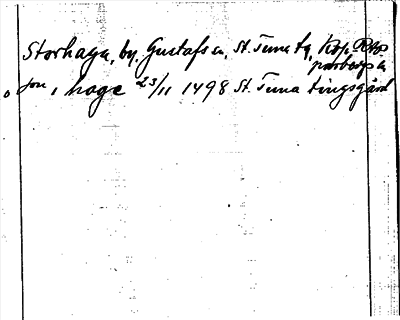 Storhaga, by, Gustafs sn, St. Tuna tg, Kop-
parbergs l.
jon i hage 23/11 1498 St. Tuna tingsgård